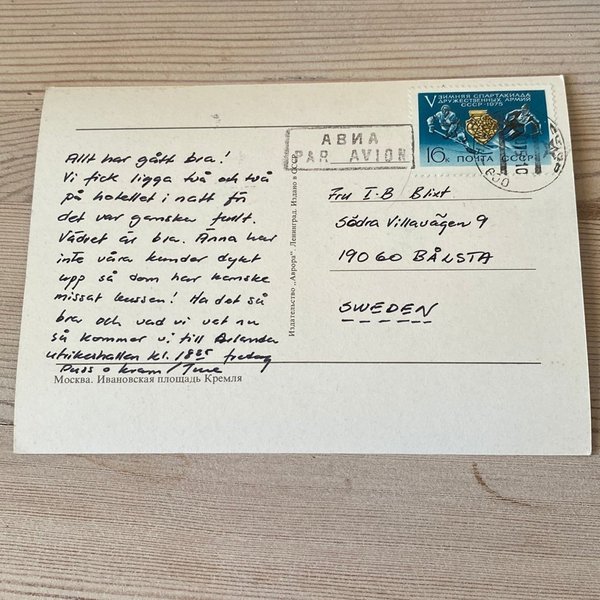 V ЗИМНЯЯ СПАРТАКИАДА
ДРУЖЕСТВЕННЫХ АРМИЙ
СССР-1975
16к ПОЧТА СССР
АВИА
PAR AVION
Allt har gått bra!
Vi fick ligga två och två
på hotellet i natt för
det var ganska fullt.
Vädret är bra. Ännu har
inte våra kunder dykt
upp så dom har kanske
missat bussen! Ha det så
bra och vad vi vet nu
så kommer vi till Arlanda
utrikeshallen kl. 18 fredag
Puss o kram/
Москва. Ивановская площадь Кремля
Издательство „Аврора". Ленинград. Издано в СССР
Fru I-B Blixt
Södra Villavägen 9
190 60 BÅLSTA
SWEDEN